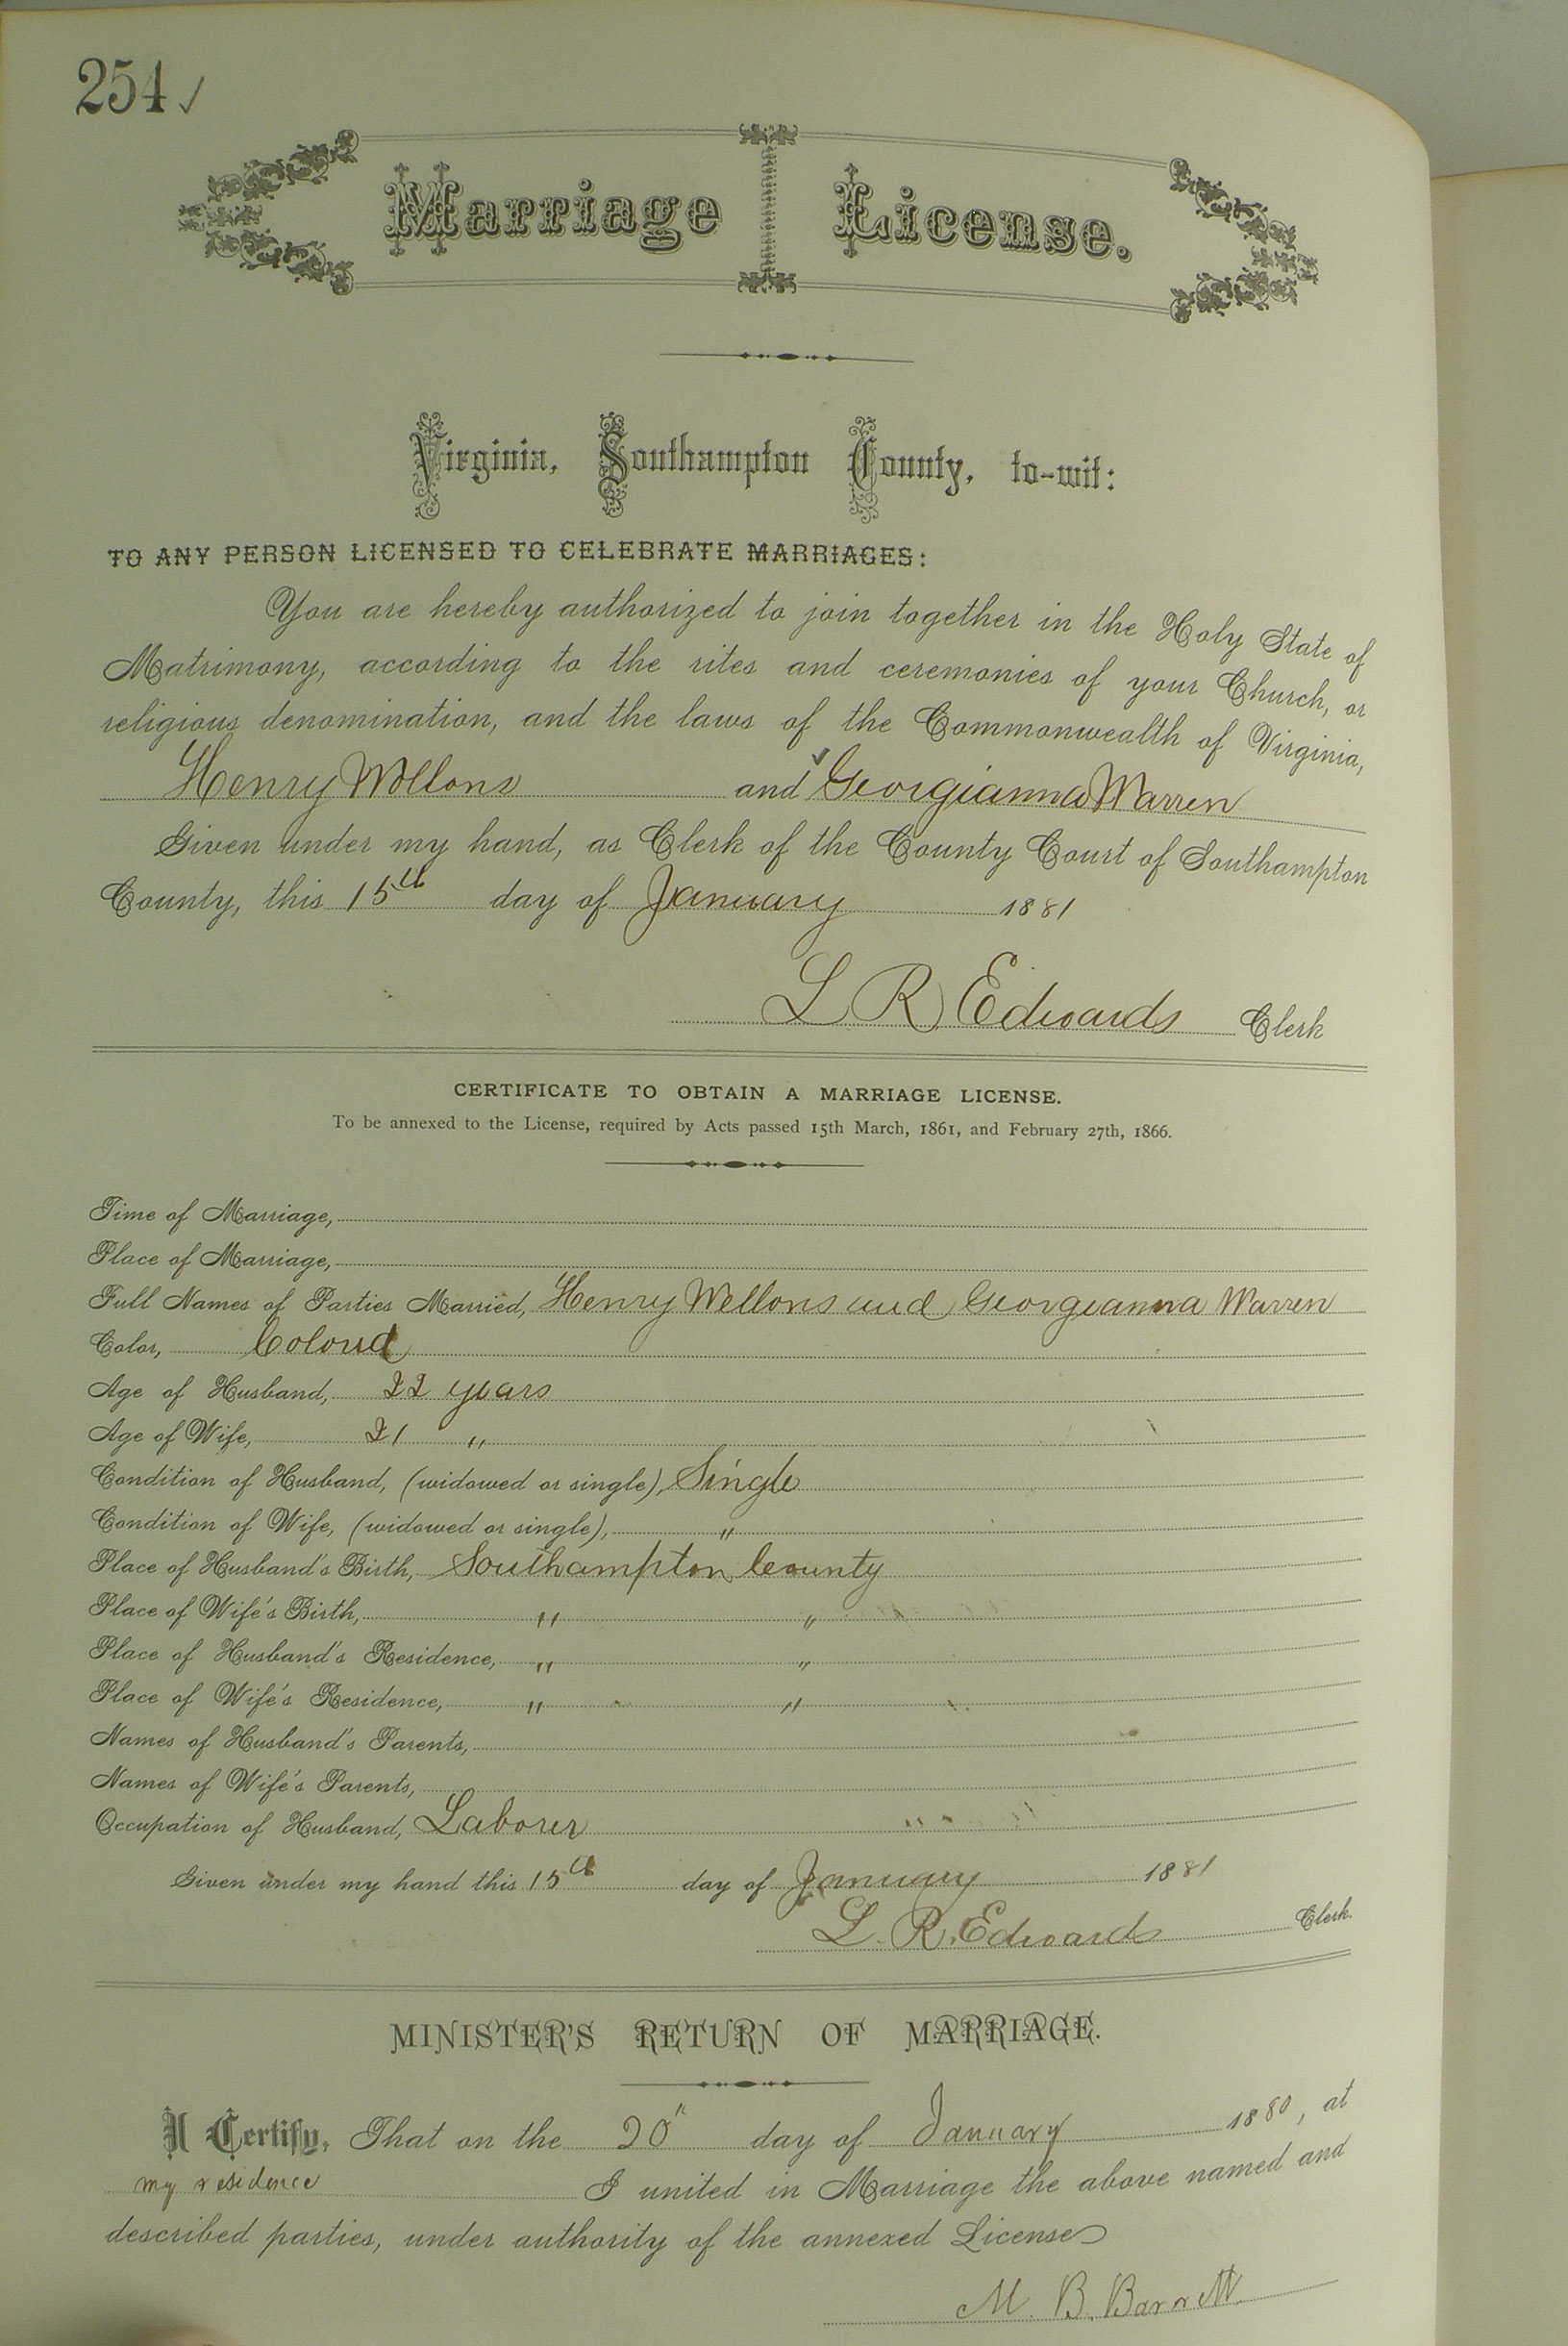 254 ✓
Marriage License.
Virginia, Southampton County, to-wit:
TO ANY PERSON LICENSED TO CELEBRATE MARRIAGES:
You are hereby authorized to join together in the Holy State of
Matrimony, according to the rites and ceremonies of your Church, or
religious denomination, and the laws of the Commonwealth of Virginia,
Henry Wellons and ✓ Georgianna Warren
Given under my hand, as Clerk of the County Court of Southampton
County, this 15th day of January 1881
L R Edwards Clerk
CERTIFICATE TO OBTAIN A MARRIAGE LICENSE.
To be annexed to the License, required by Acts passed 15th March, 1861, and February 27th, 1866.
Time of Marriage,
Place of Marriage,
Full Names of Parties Married, Henry Wellons and Georgeanna Warren
Color, Colord
Age of Husband, 22 years
Age of Wife, 21 "
Condition of Husband, (widowed or single), Single
Condition of Wife, (widowed or single), "
Place of Husband's Birth, Southampton County
Place of Wife's Birth, " "
Place of Husband's Residence, " "
Place of Wife's Residence, " "
Names of Husband's Parents,
Names of Wife's Parents,
Occupation of Husband, Laborer
Given under my hand this 15th day of January 1881
L. R. Edwards Clerk.
MINISTER'S RETURN OF MARRIAGE.
I Certify, That on the 20" day of January 1880, at
my residence I united in Marriage the above named and
described parties, under authority of the annexed License
M. B. Barrett